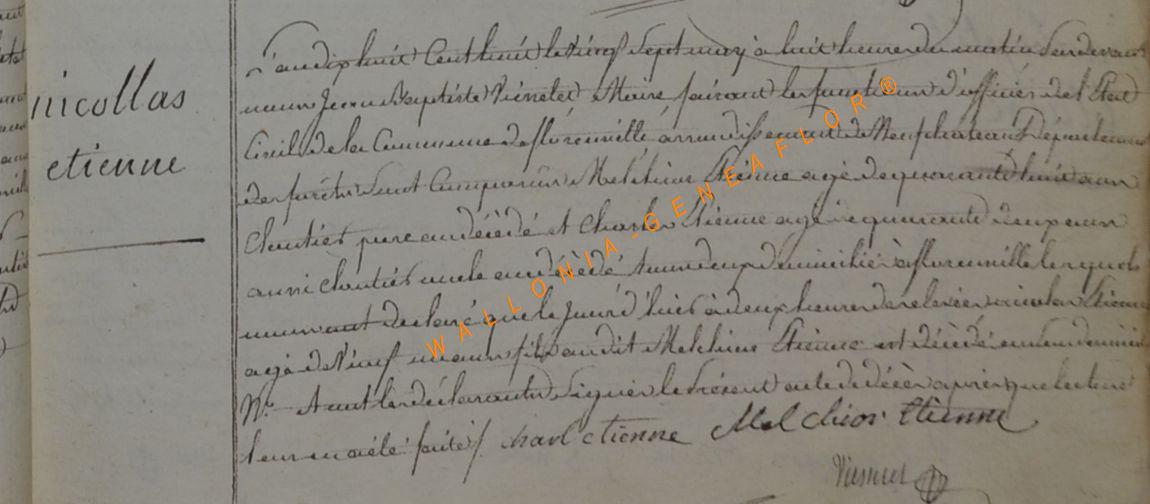 nicollas
etienne
L'an dix huit Cent huit le vingt Sept may à huit heure du matin Pardevant
nous Jean Baptiste Maire faisant les fonctions d'officier de l'Etat
Civil de la Commune de florenville arrondissement de Neufchateau Département
des foréts Sont Comparus Melchior Etienne agé de quarante huit ans
Cloutier pere au décédé et Charles Etienne agé de quarante deux ans
aussi Cloutier oncle au décédé tous deux domicilié à florenville lesquels
nous ont declaré que le Jour d'hier à deux heure de relevée nicolas Etienne
agé de Neuf ans fils au dit Melchior Etienne est décédé en
N° et ont les déclarants Signés le Présent acte de décès apres que lecture
leur en a été faite / Charl etienne Melchior Etienne
WALLONIA-GENEAFLOR®